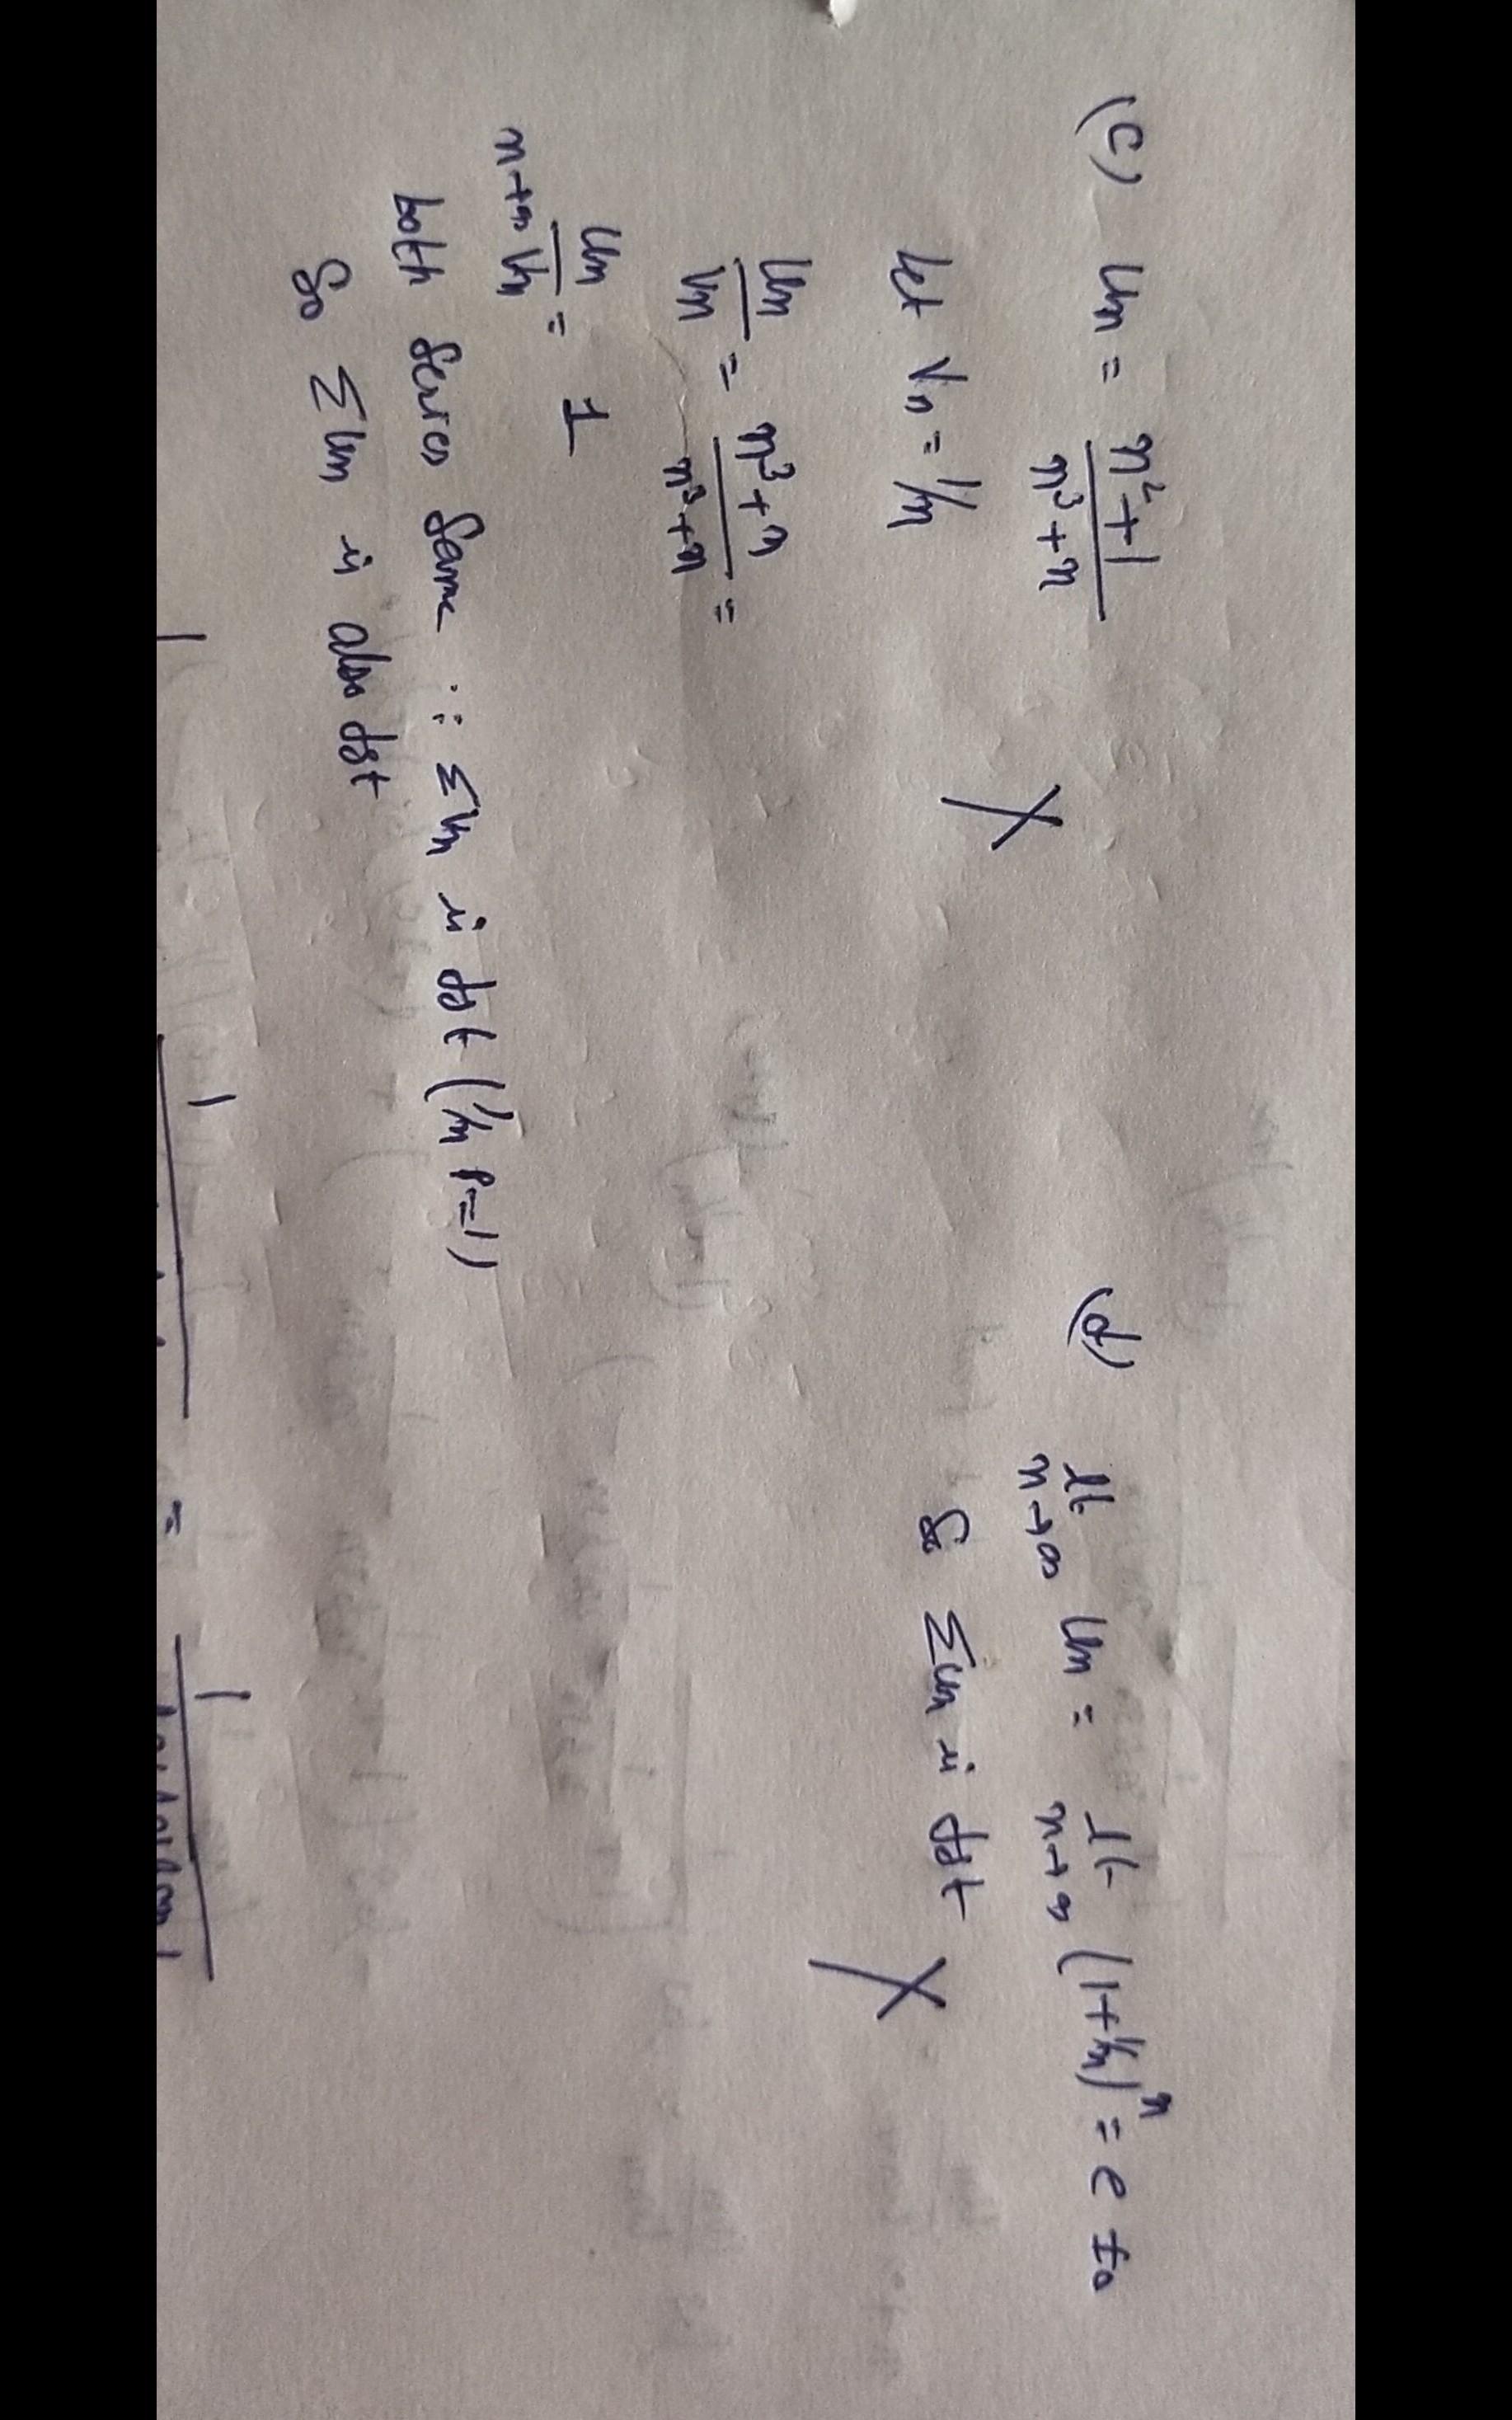 (c) Un = n²+1 / n³+n
let Vn = 1/n
Un/Vn = n³+n / n³+n =
n→∞ Un/Vn = 1
both series same ∵ ΣVn is dgt (1/n p=1)
So ΣUn is also dgt
(d) lt n→∞ Un = lt n→∞ (1+1/n)ⁿ = e ≠0
So ΣUn is dgt
1 1 = 1